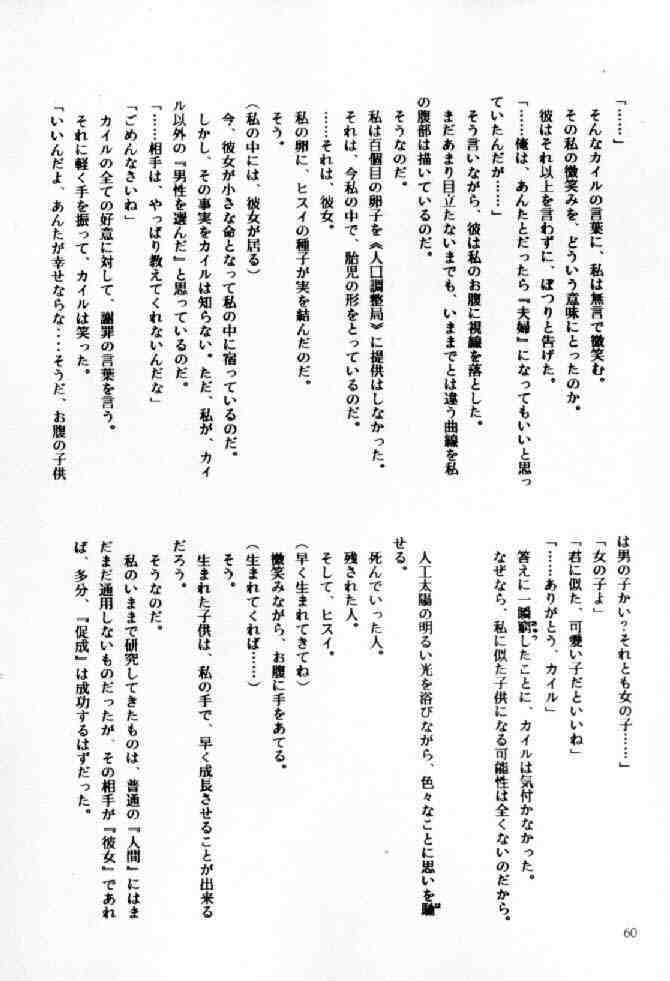 「……」
そんなカイルの言葉に、私は無言で微笑む。
その私の微笑みを、どういう意味にとったのか。
彼はそれ以上を言わずに、ぽつりと告げた。
「……俺は、あんたとだったら『夫婦』になってもいいと思っ
ていたんだが……」
そう言いながら、彼は私のお腹に視線を落とした。
まだあまり目立たないまでも、いままでとは違う曲線を私
の腹部は描いているのだ。
そうなのだ。
私は百個目の卵子を《人口調整局》に提供はしなかった。
それは、今私の中で、胎児の形をとっているのだ。
……それは、彼女。
私の卵に、ヒスイの種子が実を結んだのだ。
そう。
(私の中には、彼女が居る)
今、彼女が小さな命となって私の中に宿っているのだ。
しかし、その事実をカイルは知らない。ただ、私が、カイ
ル以外の『男性を選んだ』と思っているのだ。
「……相手は、やっぱり教えてくれないんだな」
「ごめんなさいね」
カイルの全ての好意に対して、謝罪の言葉を言う。
それに軽く手を振って、カイルは笑った。
「いいんだよ、あんたが幸せならな……そうだ、お腹の子供
は男の子かい？それとも女の子……」
「女の子よ」
「君に似た、可愛い子だといいね」
「……ありがとう、カイル」
答えに一瞬窮したことに、カイルは気付かなかった。
なぜなら、私に似た子供になる可能性は全くないのだから。
人工太陽の明るい光を浴びながら、色々なことに思いを馳
せる。
死んでいった人。
残された人。
そして、ヒスイ。
(早く生まれてきてね)
微笑みながら、お腹に手をあてる。
(生まれてくれば……)
そう。
生まれた子供は、私の手で、早く成長させることが出来る
だろう。
そうなのだ。
私のいままで研究してきたものは、普通の『人間』にはま
だまだ通用しないものだったが、その相手が『彼女』であれ
ば、多分、『促成』は成功するはずだった。
60